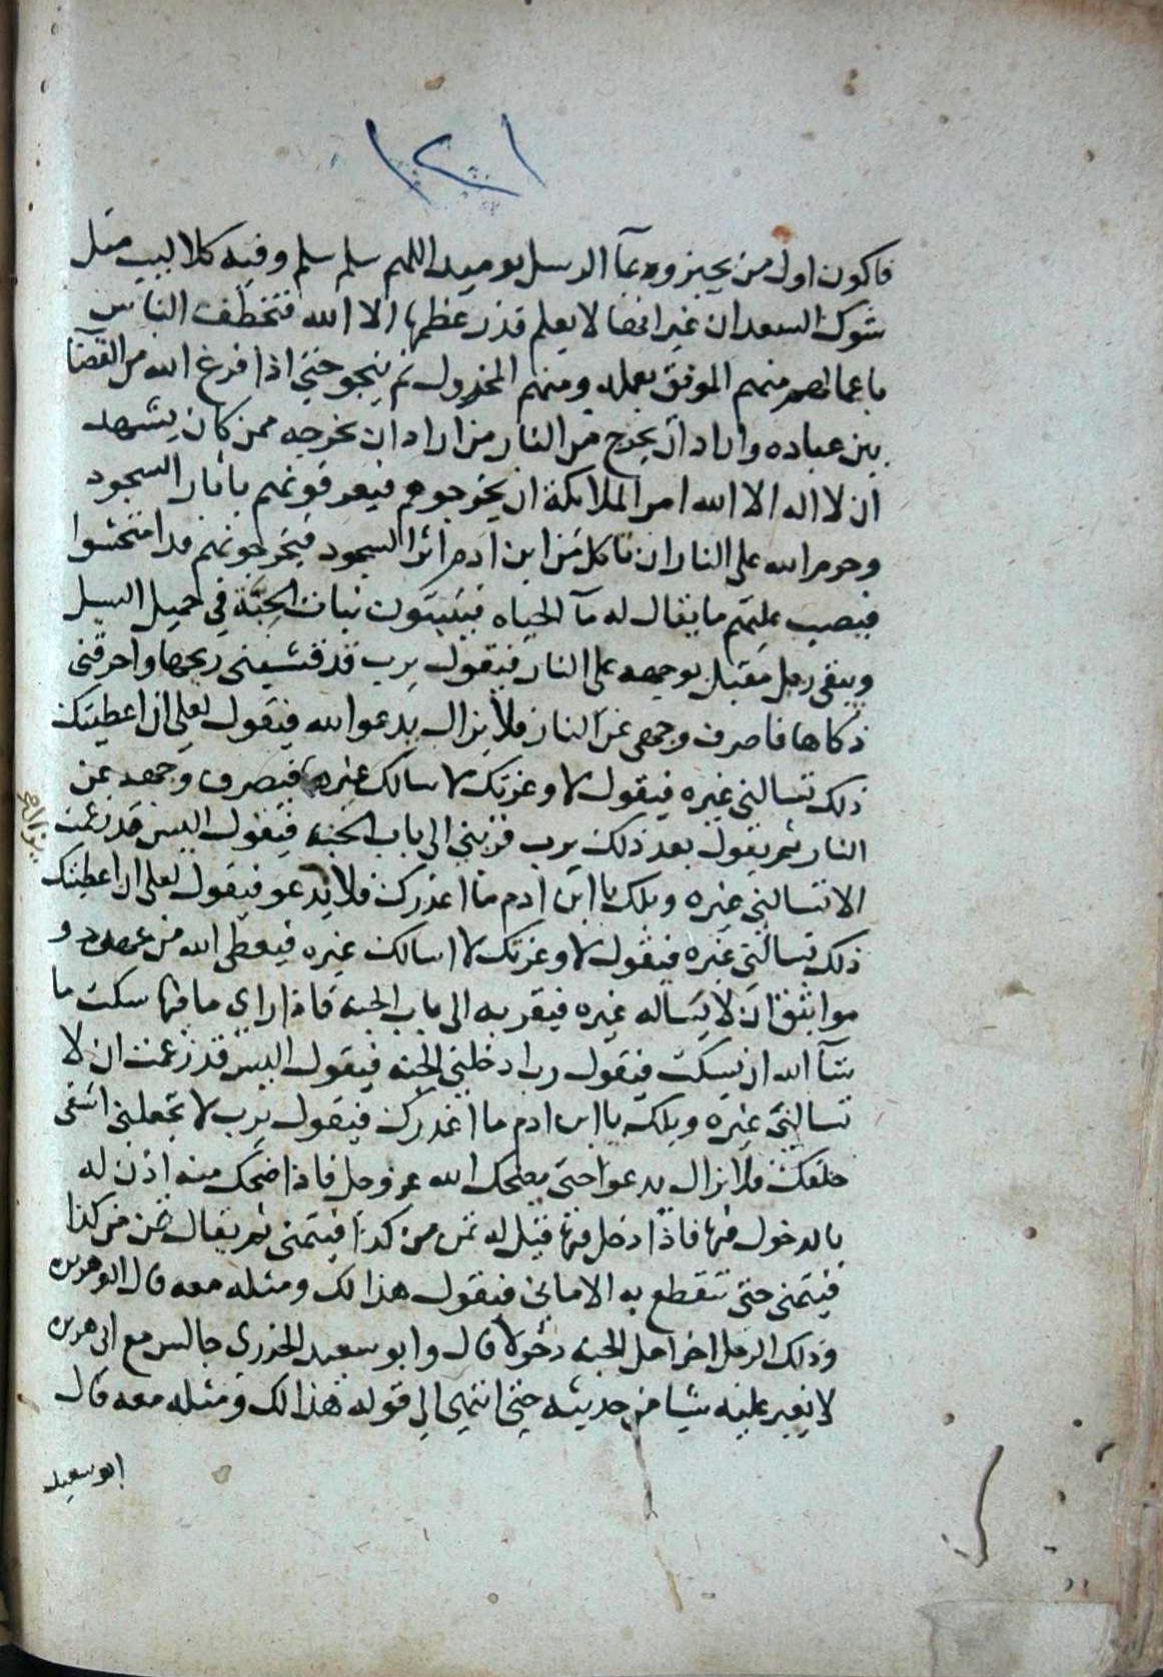 ١٢١
فاكون اول من يجيز ودعآ الرسل يوميذ اللهم سلم سلم وفيه كلاليب مثل
شوك السعدان غير انها لا يعلم قدر عظمها الا الله فتخطف الناس
باعمالهم منهم الموفق بعمله ومنهم المخردل ثم ينجو حتي اذا فرغ الله من القضآ
بين عباده واراد ان يخرج من النار من اراد ان يخرجه ممن كان يشهد
ان لا اله الا الله امر الملايكة ان يخرجوهم فيعرفونهم باثار السجود
وحرم الله على النار ان تاكل من ابن آدم اثر السجود فيخرجونهم قد امتحشوا
فيصب عليهم ما يقال له مآ الحياه فينبتون نبات الحبة في حميل السيل
ويبقى رجل مقبل بوجهه على النار فيقول يرب قد قشبني ريحها واحرقني
ذكاها فاصرف وجهي عن النار فلا يزال يدعوا الله فيقول لعلي ان اعطيتك
ذلك تسالني غيره فيقول لا وعزتك لا اسالك غيره فيصرف وجهه عن
النار ثم يقول بعد ذلك يرب قربني الي باب الجنه فيقول اليس قد زعمت
الا تسالني غيره ويلك يا ابن ادم ما اغدرك فلا يدعو فيقول لعلى ان اعطيتك
ذلك تسالني غيره فيقول لا وعزتك لا اسالك غيره فيعطي الله من عهود و
مواثيق ان لا يسأله غيره فيقربه الى باب الجنه فاذا راى ما فيها سكت ما
شآ الله ان يسكت فيقول رب ادخلني الجنه فيقول اليس قد زعمت ان لا
تسالني غيره ويلك يا ابن ادم ما اغدرك فيقول يرب لا تجعلني اشقى
خلقك فلا يزال يدعوا حتى يضحك الله عز وجل فاذا ضحك منه اذن له
بالدخول فيها فاذا دخل فيها قيل له تمن من كذا فيتمنى ثم يقال تمن من كذا
فيتمنى حتى تنقطع به الاماني فيقول هذا لك ومثله معه قال ابو هريره
وذلك الرجل اخر اهل الجنه دخولا قال وابو سعيد الخدري جالس مع ابى هريره
لا يغير عليه شيا من حديثه حتى انتهى الي قوله هذا لك ومثله معه قال
ابو سعيد